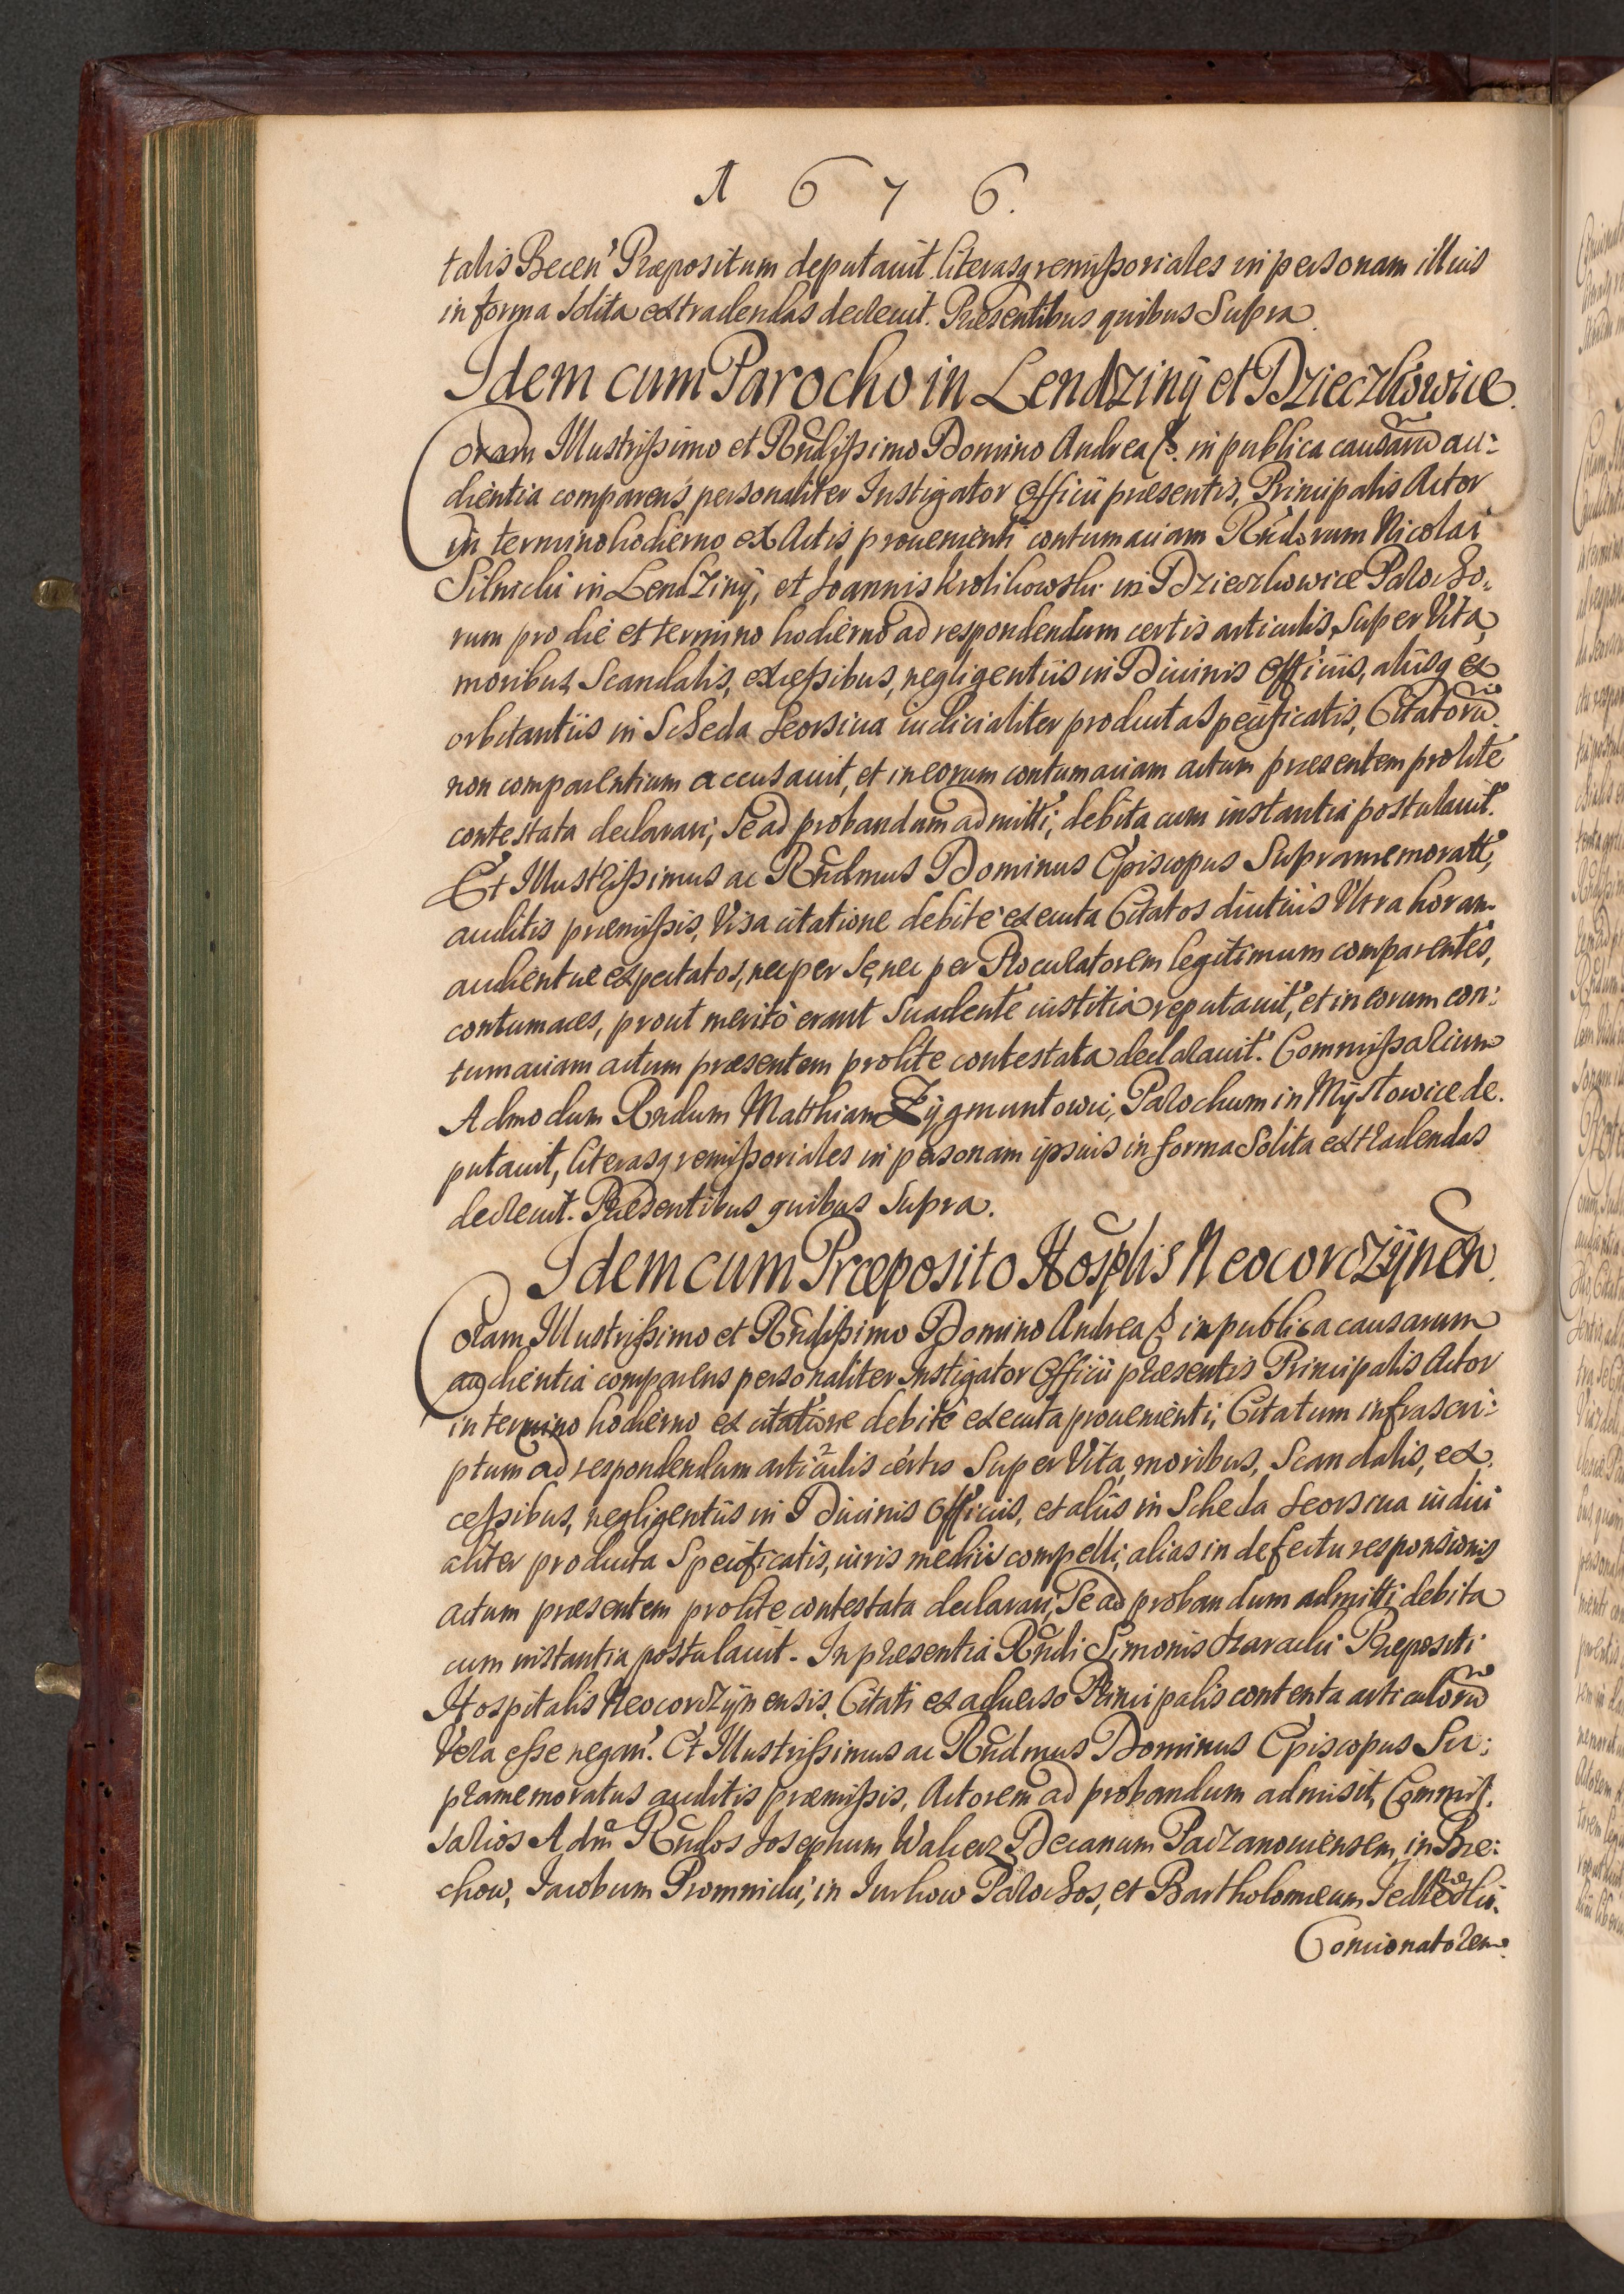 1 6 7 6.
talis Becen' Præpositum deputauit literasq remißoriales in personam illius
in forma solita extradendas decreuit. Præsentibus quibus Supra.
Idem cum Parocho in Lendziny et Dzieczkowice.
Coram Illustrißimo et Rndißimo Domino Andrea ß. in publica causarũ au:
dientia comparens personaliter Instigator Officii præsentis, Principalis Actor
in termino hodierno ex Actis proueniente contumaciam Rndorum Nicolai
Silnicki in Lendziny, et Joannis Krolikowski in Dzieczkowice Parocho:
rum pro die et termino hodierno ad respondendum certis articulis, super Vita,
moribus, Scandalis, exceßibus, negligentiis in Diuinis Officiis, aliisq ex
orbitantiis in Scheda seorsiua iudicialiter producta specificatis, Citatorũ
non comparentium accusauit, et in eorum contumaciam actum præsentem pro lite
contestata declarari, Se ad probandum admitti, debita cum instantia postulauit.
Et Illustrißimus ac Rndmus Dominus Episcopus Supramemoratt,
auditis præmißis, Visa citatione debite executa Citatos diutius Ultra horam
audientiæ expectatos, nec per Se, nec per Procuratorem legitimum comparentes,
contumaces, prout merito erant Suadente iustitia reputauit, et in eorum con:
tumaciam actum præsentem pro lite contestata declarauit. Commißarium
Admodum Rndum Matthiam Zygmuntowic, Parochum in Mysłowice de.
putauit, literasq remißoriales in personam ipsius in forma Solita extradendas
decreuit. Præsentibus quibus Supra.
Idem cum Præposito Hosplis Neocorczynen.
Coram Illustrißimo et Rndißimo Domino Andrea ß in publica causarum
audientia comparens personaliter Instigator Officii præsentis Principalis Actor
in termino hodierno ex citatione debite executa prouenienti, Citatum infrascri:
ptum ad respondendum articulis certis Super Vita, moribus, Scandalis, ex.
ceßibus, negligentiis in Diuinis Officiis, et aliis in Scheda Seorsiua iudici
aliter producta Specificatis, iuris mediis compelli, alias in defectu responsionis
actum præsentem pro lite contestata declarari, Se ad probandum admitti debita
cum instantia postulauit. In præsentia Rndi Simonis Præpositi
Hospitalis Neocorczynensis, Citati ex aduerso Principalis contenta articulorũ
Vera eße negan'. Et Illustrißimus ac Rndmus Dominus Episcopus Su:
pramemoratus auditis præmißis, Actorem ad probandum admisit, Commiß.
sarios Adm Rndos Josephum Walierz Decanum Paczanouiensem, in Bie:
chow, Jacobum Promnicki, in Jurkow Parochos, et Bartholomeum
Concionatorem.